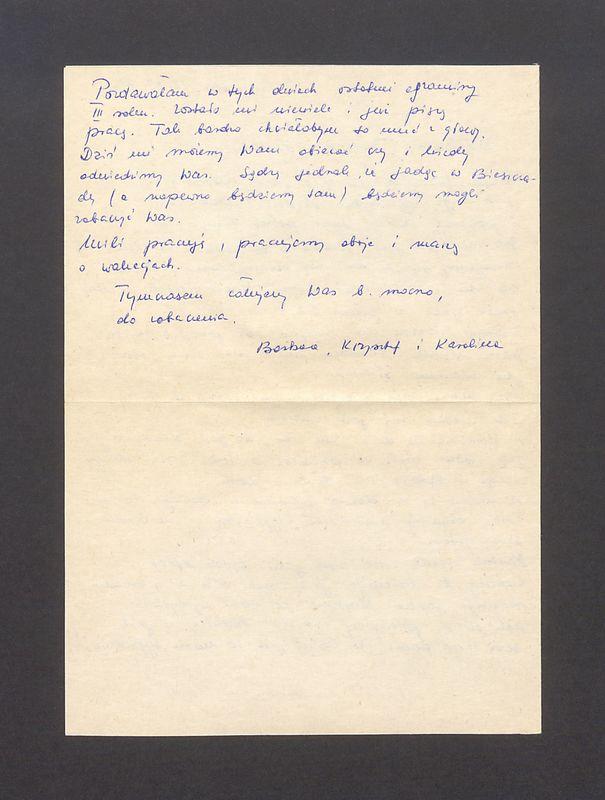 Pozdawałam w tych dniach ostatnie egzaminy
III roku. Zostało mi niewiele i już piszę
pracę. Tak bardzo chciałabym to mieć z głowy.
Dziś nie możemy Wam obiecać czy i kiedy
odwiedzimy Was. Sądzę jednak, że jadąc w Bieszcza-
dy (a napewno będziemy tam) będziemy mogli
zobaczyć Was.
pracuję, pracujemy oboje i marzę
o wakacjach.
Tymczasem całujemy Was b. mocno,
do zobaczenia.
Barbara, Krzysztof i Karolina